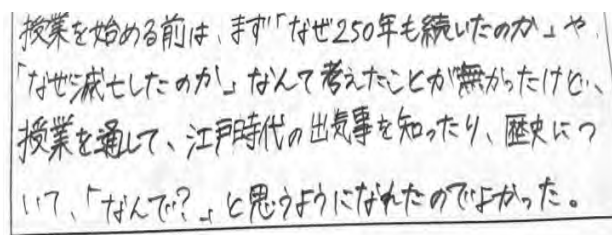 授業を始める前は、まず「なぜ250年も続いたのか」や、
「なぜ滅亡したのか」なんて考えたことが無かったけど、
授業を通して、江戸時代の出来事を知ったり、歴史につ
いて、「なんで?」と思うようになれたのでよかった。